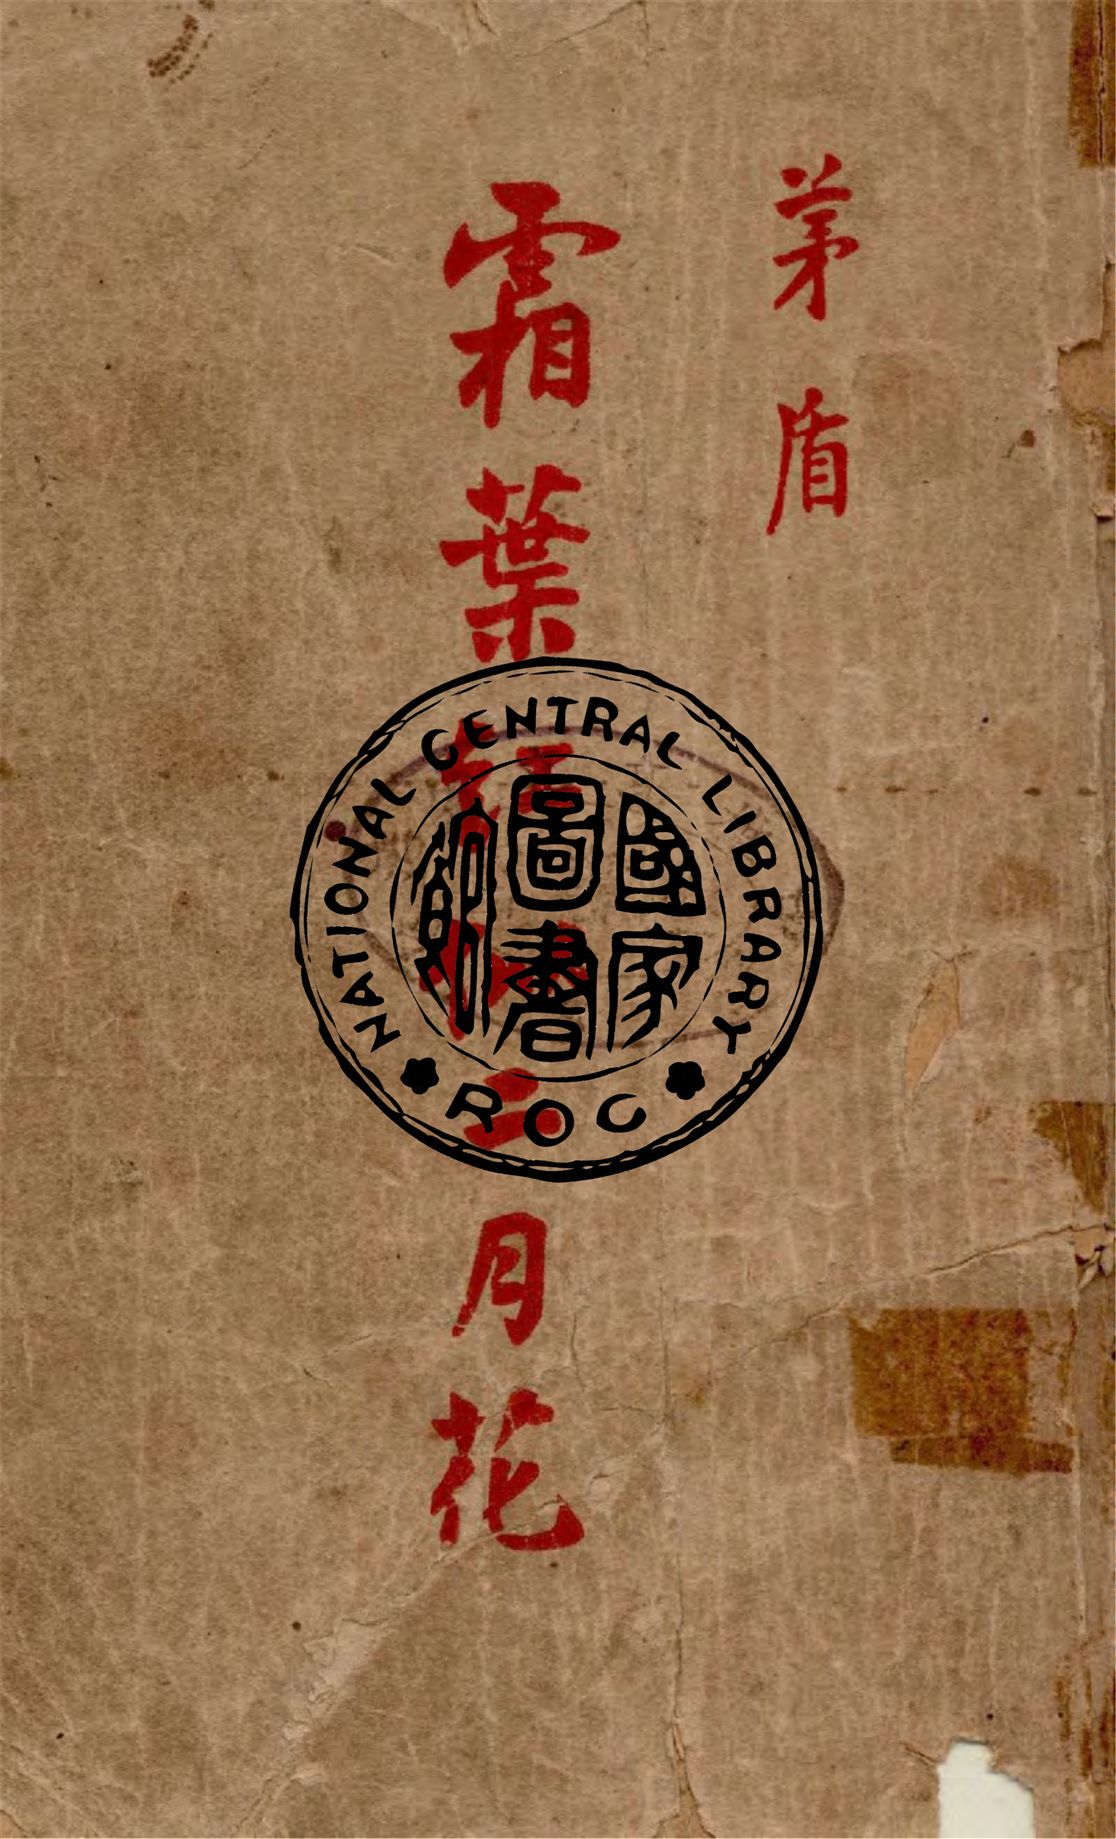 茅盾
霜葉紅似二月花
NATIONAL CENTRAL LIBRARY
國家
圖書
館
ROC